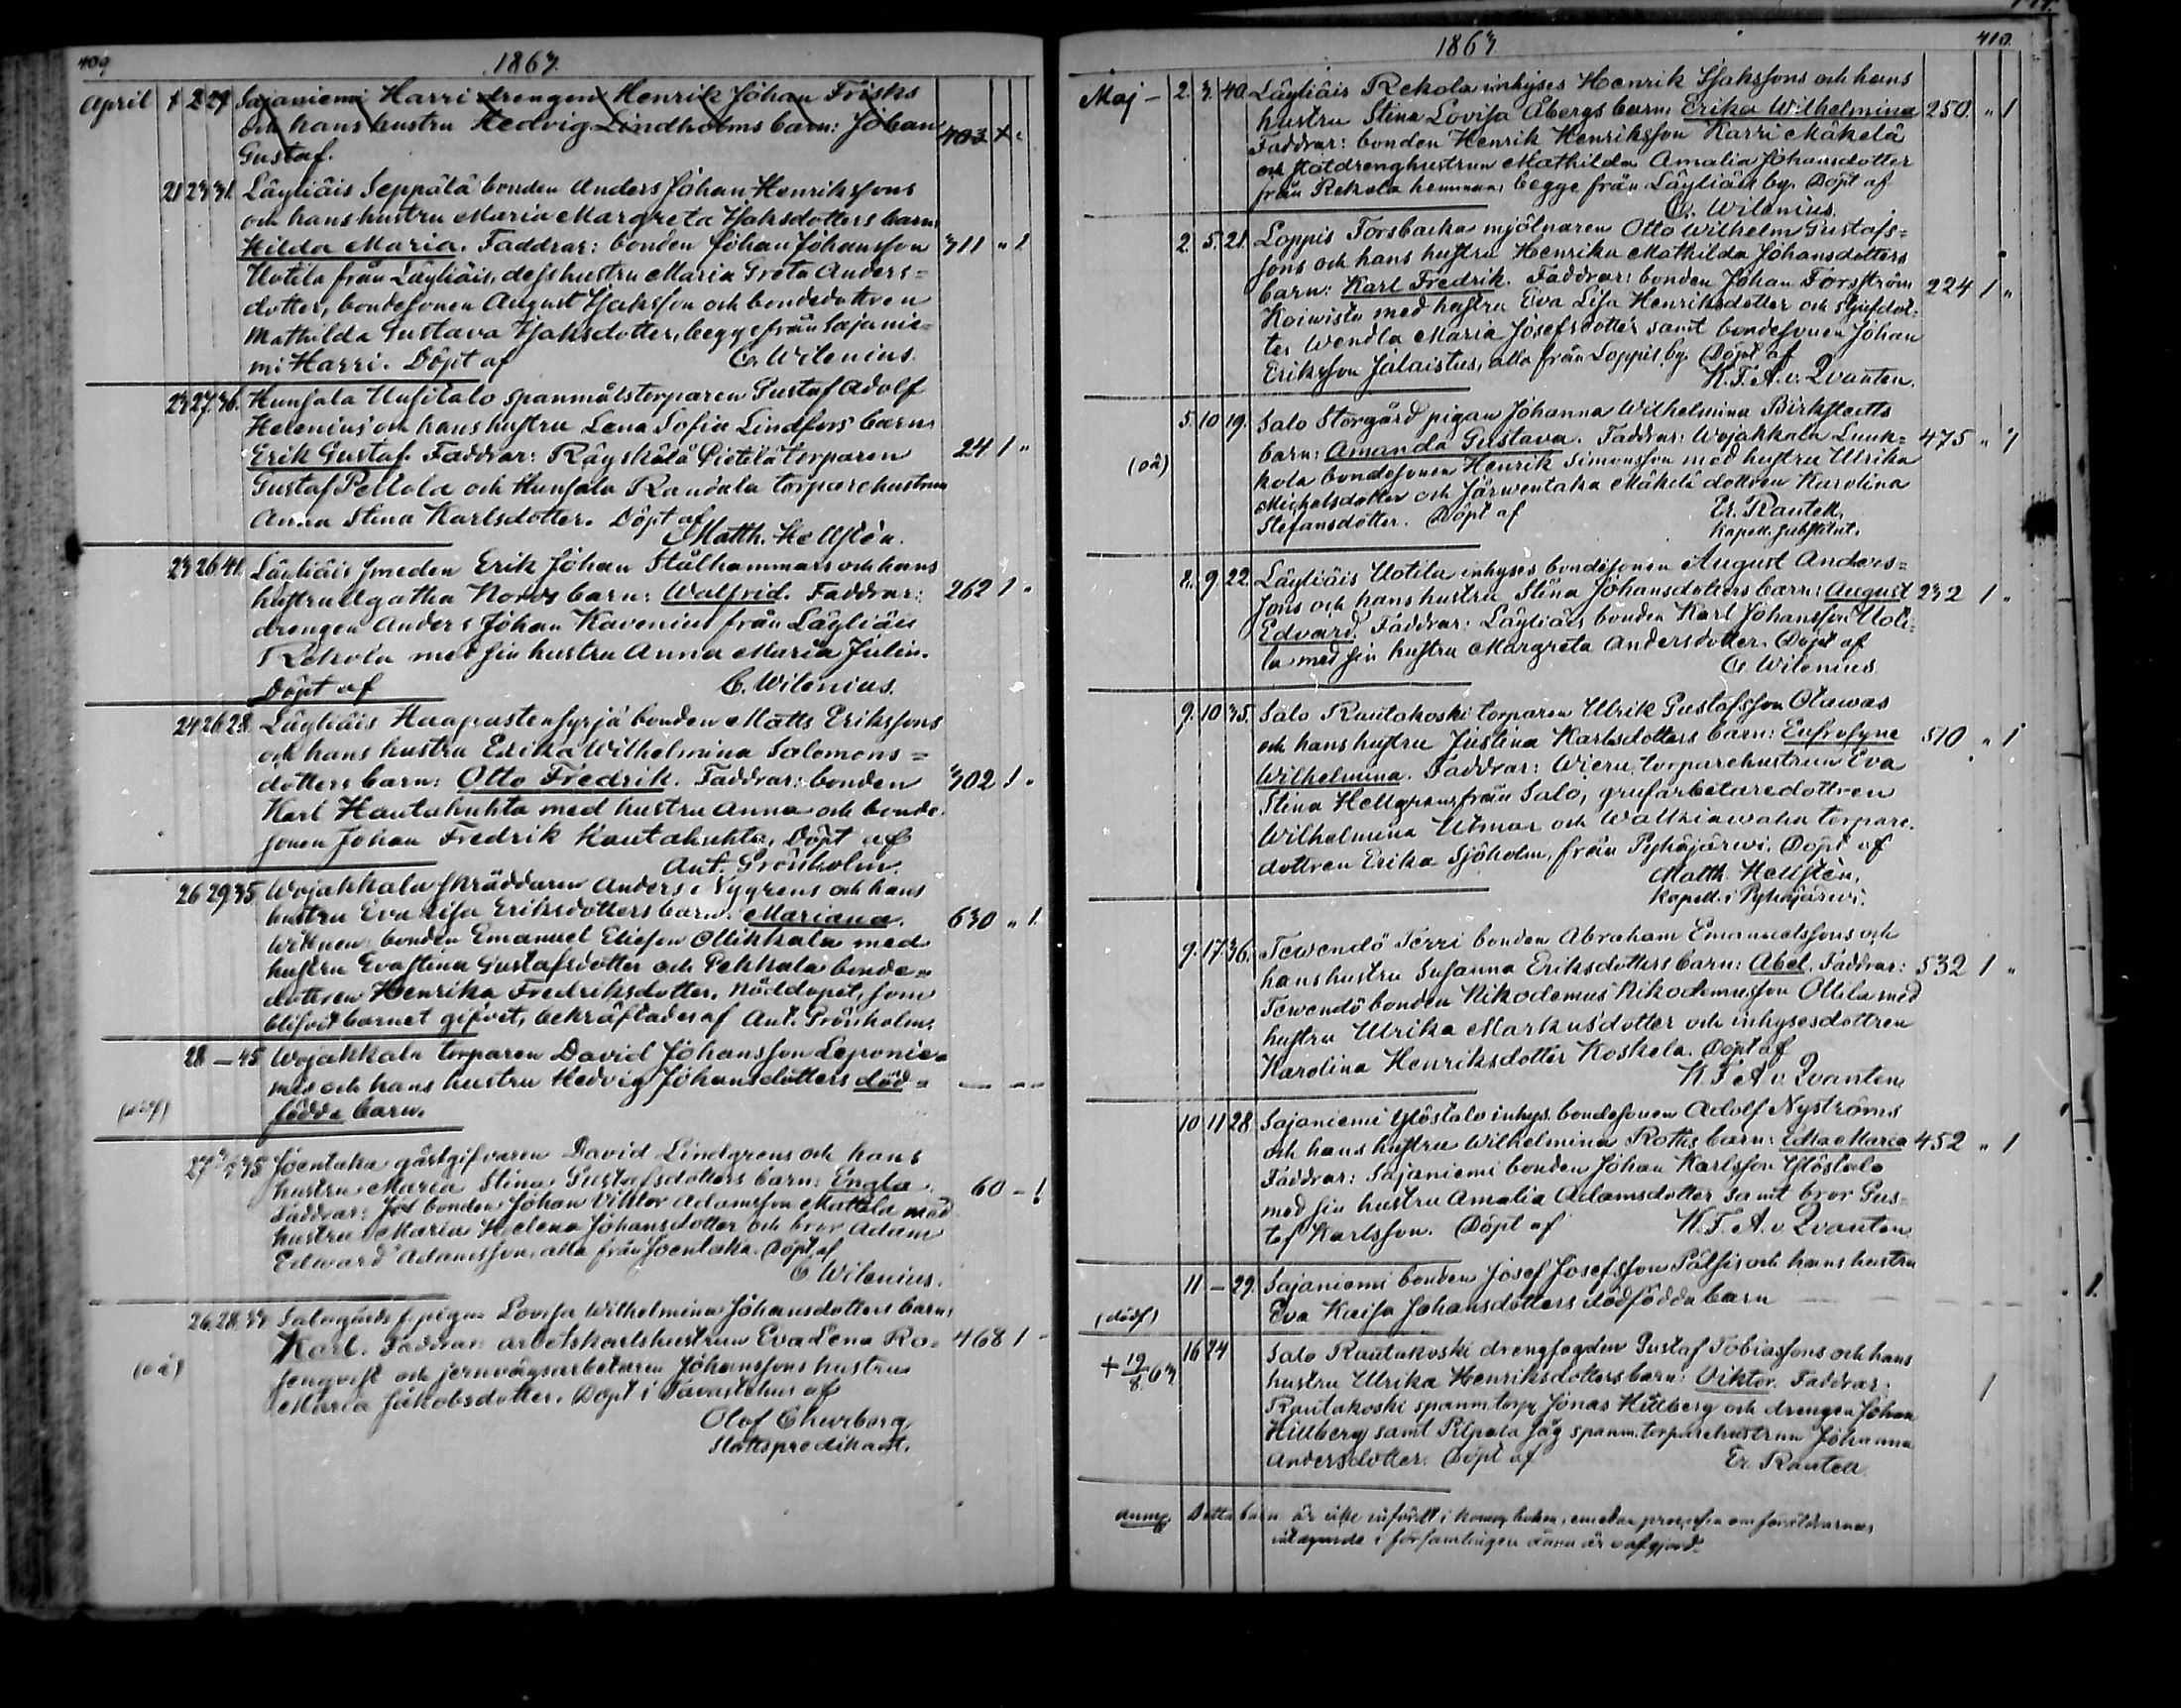 409
1863.
April 1 2 29 Sajaniemi Harri drengen Henrik Johan Frisks
och hans hustru Hedvig Lindholms barn: Johan 403
Gustaf.
21 23 31. Läyliäis Seppälä bonden Anders Johan Henrikssons
och hans hustru Maria Margreta Isaksdotters barn:
Hilda Maria. Faddrar: bonden Johan Johansson 311 " 1
Uotila från Läyliäis, dess hustru Maria Greta Anders=
dotter, bondesonen August Isaksson och bondedottren
Mathilda Gustava Isaksdotter, begge från Sajanie=
mi Harri. Döpt af C. Wilenius.
23 27. 36. Hunsala Uusitalo spanmålstorparen Gustaf Adolf
Helenius och hans hustru Lena Sofia Lindfors barn:
Erik Gustaf. Faddrar: Räyskälä Pietilä torparen 24 1 "
Gustaf Pellola och Hunsala Randala torparehustrun
Anna Stina Karlsdotter. Döpt af
Matth. Hellstén.
23 26 41. Läyliäis smeden Erik Johan Stålhammars och hans
hustru Agatha Nords barn: Walfrid. Faddrar: 262 1 "
drengen Anders Johan Kavenius från Läyliäis
Rekola med sin hustru Anna Maria Julin.
Döpt af C. Wilenius.
24 26 28. Läyliäis Haapastensyrjä bonden Matts Erikssons
och hans hustru Erika Wilhelmina Salomons=
dotters barn: Otto Fredrik. Faddrar: bonden 302 1 "
Karl Hautakuhta med hustru Anna och bonde-
sonen Johan Fredrik Kautakuhta. Döpt af
Ant. Grönholm.
26 29 35 Wojakkala skräddaren Anders Nygrens och hans
hustru Eva Lisa Eriksdotters barn: Mariana. 630 " 1.
Wittnen: bonden Emanuel Eliesson Ollikkala med
hustru Evastina Gustafsdotter och Pekkala bonde=
dottren Henrika Fredriksdotter. Nöddopet, som
blifvit barnet gifvet, bekräftades af Ant. Grönholm.
28 — 45 Wojakkala torparen David Johansson Leponie=
mis och hans hustru Hedvig Johansdotters död= — — —
(dödf) födda barn.
27 3/5 35 Joentaka gästgifvaren David Lindgrens och hans
hustru Maria Stina Gustafsdotters barn: Engla. 60 - 1
Faddrar: bonden Johan Viktor Adamsson Mattila med
hustru Maria Helena Johansdotter och bror Adam
Edward Adamsson, alla från Joentaka. Döpt af
C Wilenius.
26. 28. Salogårds f. pigan Lovisa Wilhelmina Johansdotters barn:
Karl. Faddrar: arbetskarlshustrun Eva Lena Ro= 468 1 -
(oä) senqvist och jernvägsarbetaren Johanssons hustru
Maria Jakobsdotter. Döpt i Tavastehus af
Olof Ehnrborg
Slottspredikant.
410.
1863
Maj - 2. 3. 40. Läyliäis Rekola inhyses Henrik Isakssons och hans
hustru Stina Lovisa Åbergs barn: Erika Wilhelmina 250. " 1
Faddrar: bonden Henrik Henriksson Karri Mäkelä
och statdrenghustrun Mathilda Amalia Johansdotter
från Rekola hemman, begge från Läyliäis by. Döpt af
C. Wilenius.
2. 5. 21. Loppis Forsbacka mjölnaren Otto Wilhelm Gustafs=
sons och hans hustru Henrika Mathilda Johansdotters
barn: Karl Fredrik. Faddrar: bonden Johan Forsström 224 1 "
Koiwisto med hustru Eva Lisa Henriksdotter och styfdot=
ter Wendla Maria Josefsdotter samt bondesonen Johan
Eriksson Jalaistus, alla från Loppis by. Döpt af
K. F. A. v. Qvanten.
5. 10 19. Salo Storgård pigan Johanna Wilhelmina Birkstedts
barn: Amanda Gustava. Faddrar: Wojakkala Luuk= 475 " 1
(oä) kola bondesonen Henrik Simonsson med hustru Ulrika
Michelsdotter och Järwentaka Mäkelä dottren Karolina
Stefansdotter. Döpt af Er. Rantell,
Kapell. substitut.
8. 9 22. Läyliäis Uotila inhyses bondesonen August Anders=
sons och hans hustru Stina Johansdotters barn: August 232 1 "
Edvard. Faddrar: Läyliäis bonden Karl Johansson Uoti=
la med sin hustru Margreta Andersdotter. Döpt af
C. Wilenius
9. 10 35. Salo Rautakoski torparen Ulrik Gustafsson Olawas
och hans hustru Justina Karlsdotters barn: Eufrosyne 510 " 1
Wilhelmina. Faddrar: Wieru torparehustrun Eva
Stina Hellgrens från Salo, grufarbetaredottren
Wilhelmina Utmar och Wattkiawaha torpare-
dottren Erika Sjöholm, från Pyhäjärwi. Döpt af
Matth. Hellstén,
Kapell. i Pyhäjärwi.
9. 17. 36. Tewendö Terri bonden Abraham Emanuelssons och
hans hustru Susanna Eriksdotters barn: Abel. Faddrar: 532 1 "
Tewendö bonden Nikodemus Nikodemusson Ollila med
hustru Ulrika Markusdotter och inhysesdottren
Karolina Henriksdotter Koskela. Döpt af
K. F. A. v. Qvanten
10 11 28 Sajaniemi Ylöstalo inhys. bondesonen Adolf Nyströms
och hans hustru Wilhelmina Roths barn: Edla Maria 452 " 1
Faddrar: Sajaniemi bonden Johan Karlsson Ylöstalo
med sin hustru Amalia Adamsdotter samt bror Gus=
taf Karlsson. Döpt af K. F. A. v Qvanten
11 — 29. Sajaniemi bonden Josef Josefsson Pälsis och hans hustru
(dödf) Eva Kaisa Johansdotters dödfödda barn — — — — 1.
16 24 Salo Rautakoski drengfogden Gustaf Tobiassons och hans
+ 19/8 63 hustru Ulrika Henriksdotters barn: Viktor. Faddrar: 1
Rautakoski spanm. torp. Jonas Hillberg och drengen Johan
Hillberg samt Pilpala Jäg spanm. torparehustrun Johanna
Andersdotter. Döpt af Er. Rantell
anmp. Detta barn är icke infördt i kom. boken, emedan processen om föräldrarnas
intagande i församlingen ännu är oafgjord.